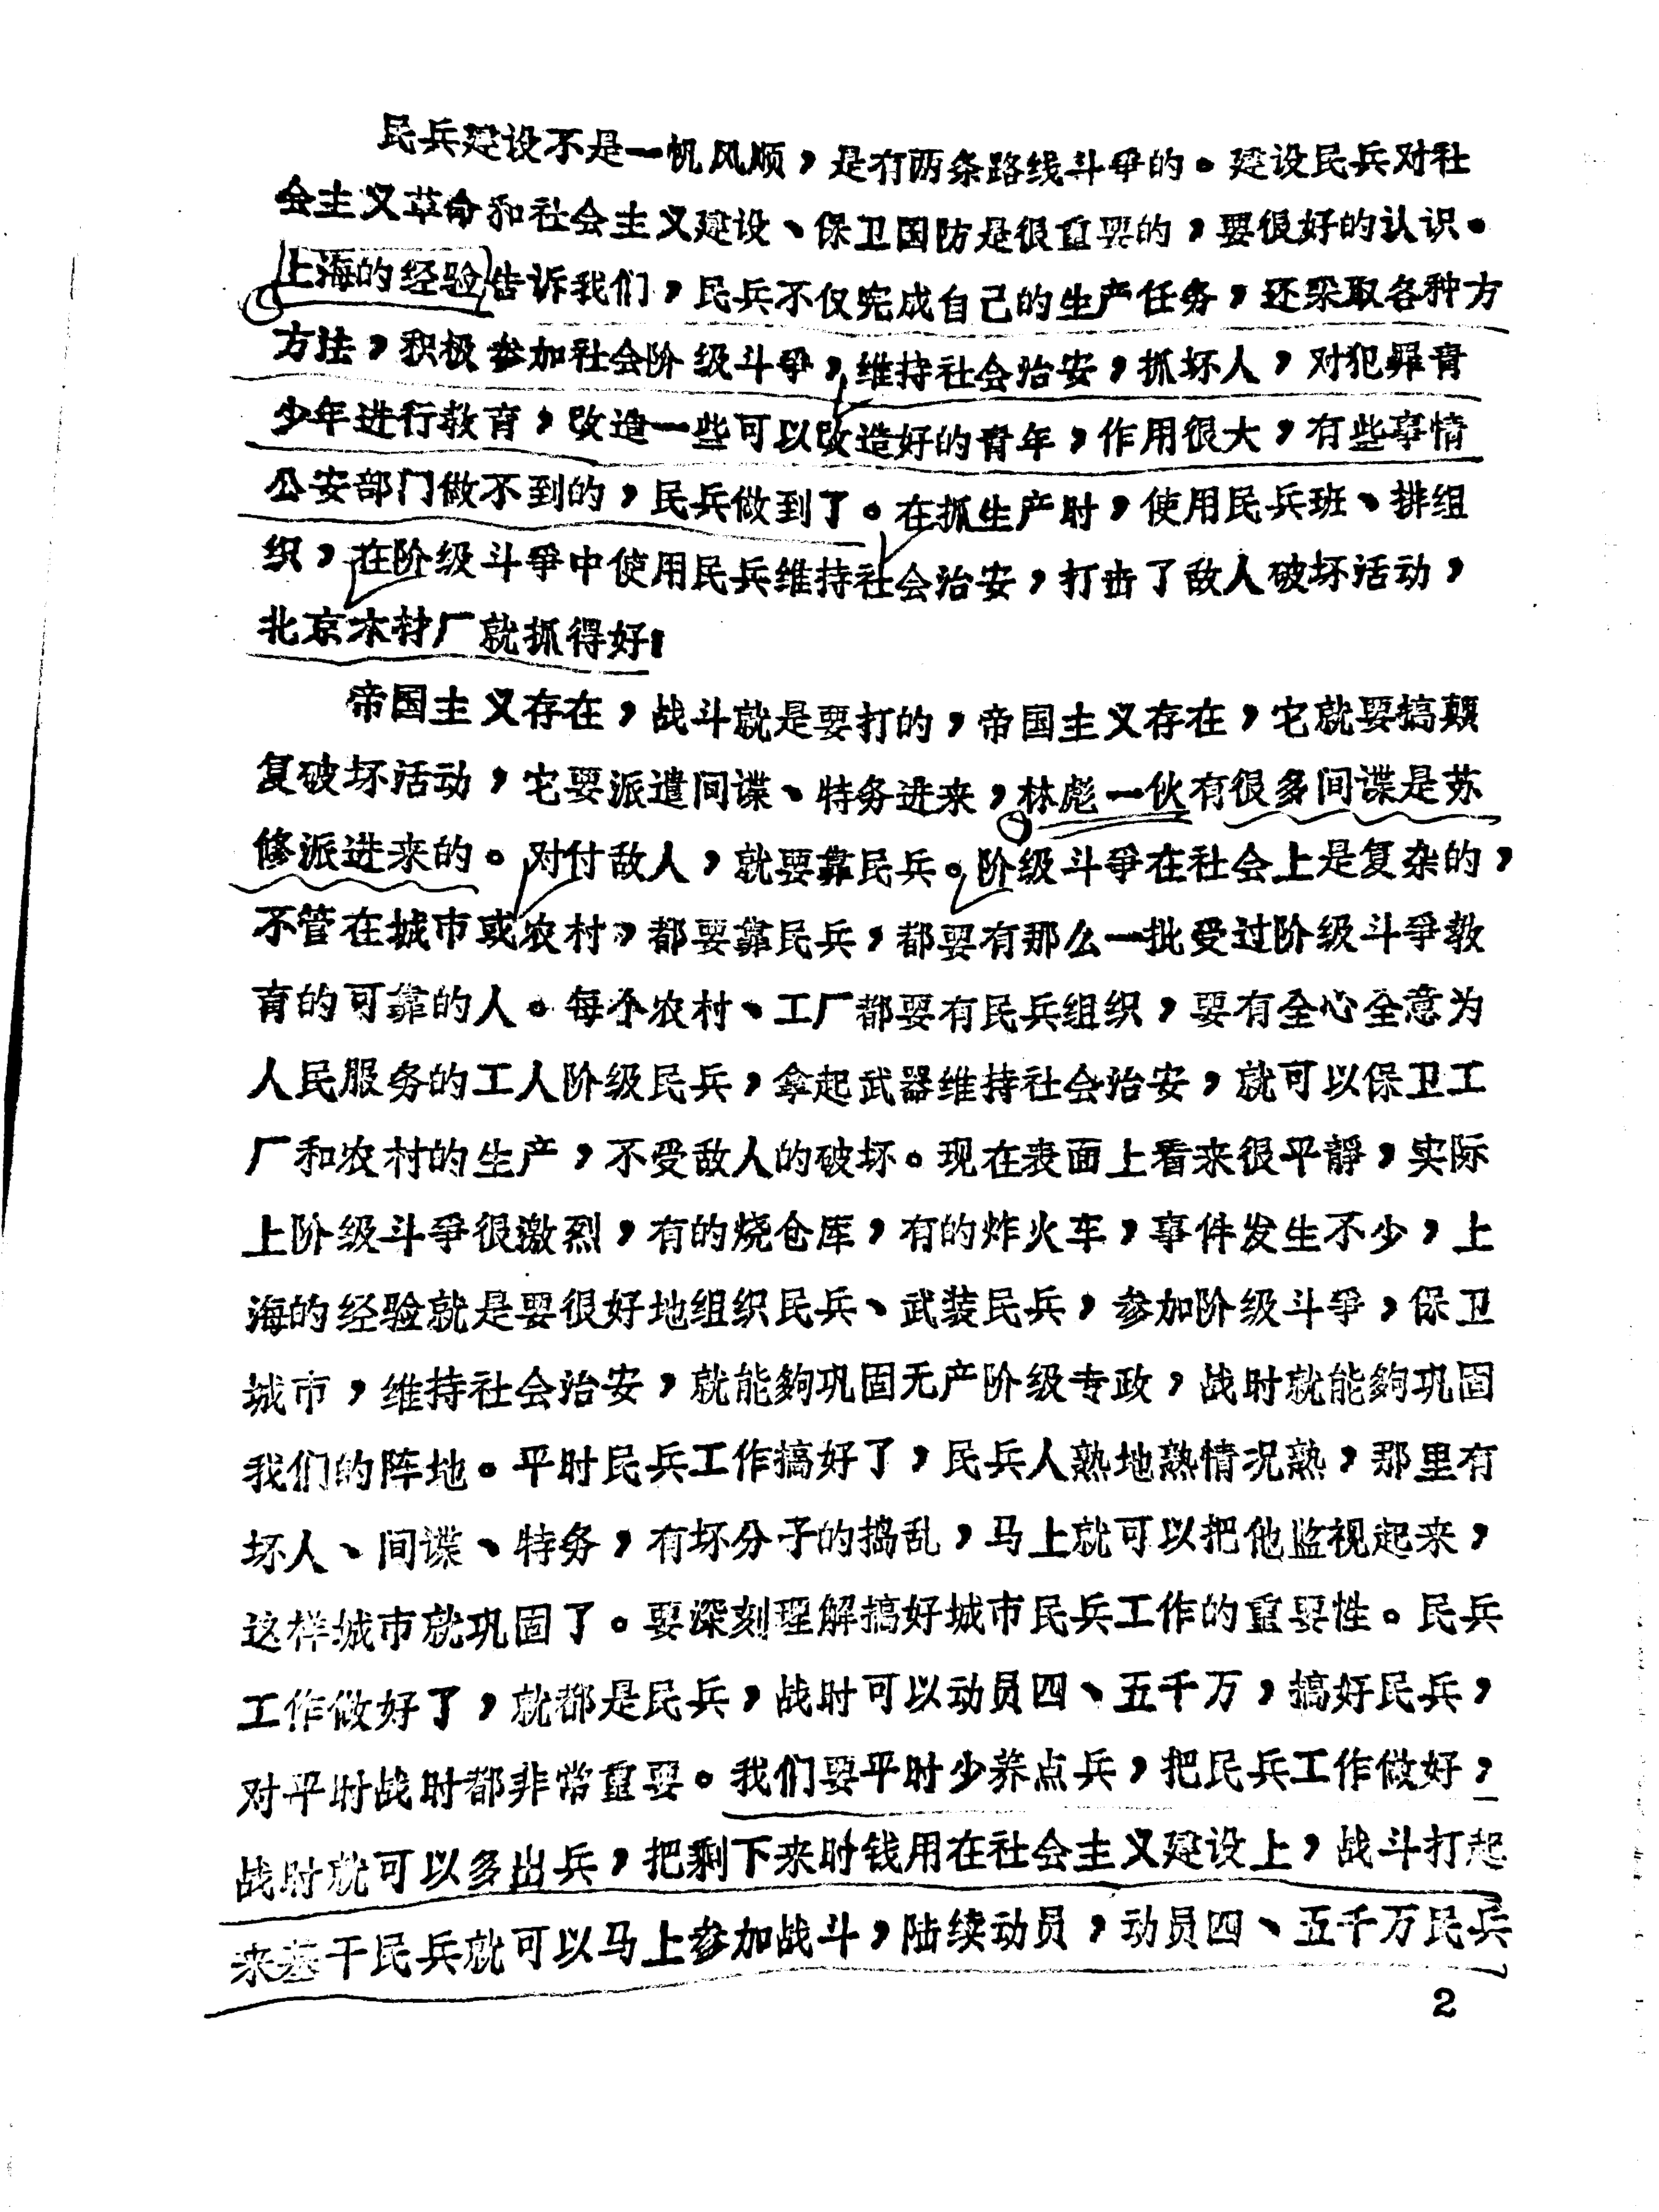 民兵建设不是一帆风顺，是有两条路线斗爭的。建设民兵对社
会主义革命和社会主义建设、保卫国防是很重要的，要很好的认识。
上海的经验告诉我们，民兵不仅完成自己的生产任务，还采取各种方
方法，积极参加社会阶级斗爭，维持社会治安，抓坏人，对犯罪青
少年进行教育，改造一些可以改造好的青年，作用很大，有些事情
公安部门做不到的，民兵做到了。在抓生产时，使用民兵班、排组
织，在阶级斗爭中使用民兵维持社会治安，打击了敌人破坏活动，
北京木材厂就抓得好！
帝国主义存在，战斗就是要打的，帝国主义存在，它就要搞颠
复破坏活动，它要派遣间谍、特务进来，林彪一伙有很多间谍是苏
修派进来的。对付敌人，就要靠民兵。阶级斗爭在社会上是复杂的，
不管在城市或农村，都要靠民兵，都要有那么一批受过阶级斗爭教
育的可靠的人。每个农村、工厂都要有民兵组织，要有全心全意为
人民服务的工人阶级民兵，拿起武器维持社会治安，就可以保卫工
厂和农村的生产，不受敌人的破坏。现在表面上看来很平靜，实际
上阶级斗爭很激烈，有的烧仓库，有的炸火车，事件发生不少，上
海的经验就是要很好地组织民兵、武装民兵，参加阶级斗爭，保卫
城市，维持社会治安，就能夠巩固无产阶级专政，战时就能夠巩固
我们的阵地。平时民兵工作搞好了，民兵人熟地熟情况熟，那里有
坏人、间谍、特务，有坏分子的捣乱，马上就可以把他监视起来，
这样城市就巩固了。要深刻理解搞好城市民兵工作的重要性。民兵
工作做好了，就都是民兵，战时可以动员四、五千万，搞好民兵，
对平时战时都非常重要。我们要平时少养点兵，把民兵工作做好，
战时就可以多出兵，把剩下来时钱用在社会主义建设上，战斗打起
来基干民兵就可以马上参加战斗，陆续动员，动员四、五千万民兵
2